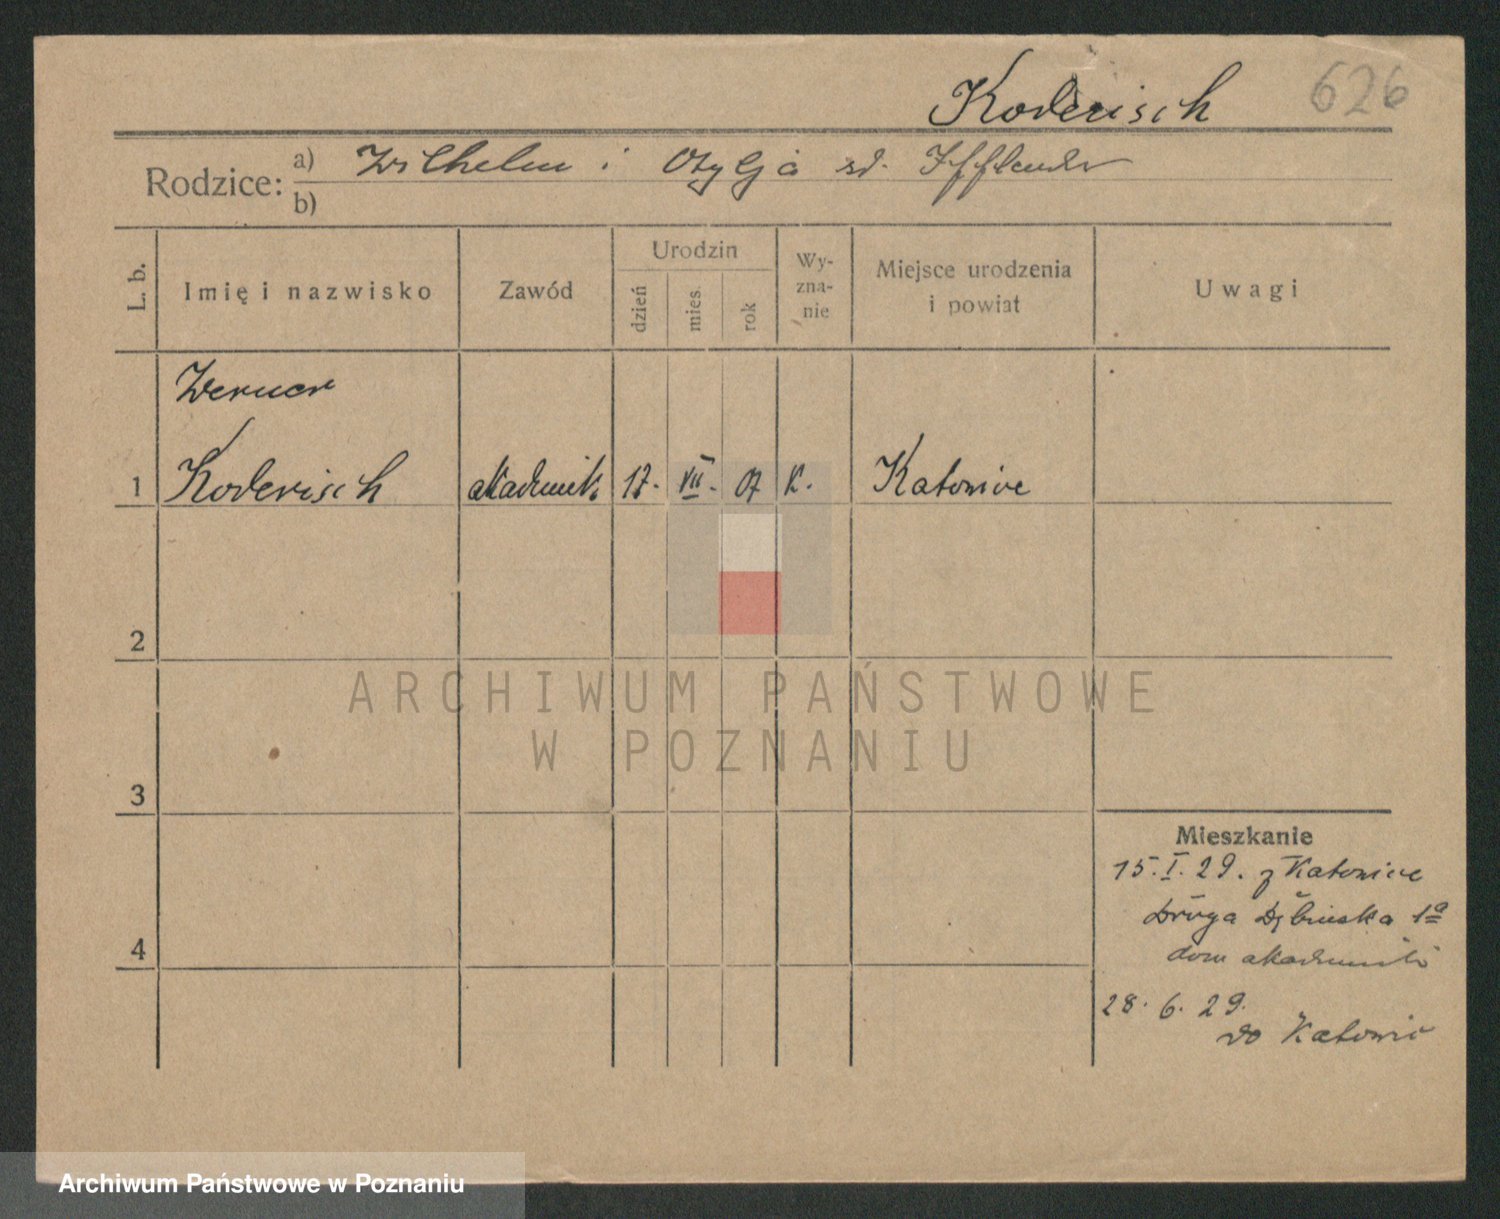 626
Koderisch
Rodzice:
a) Wilhelm i Otylja zd. Ifflender
b)
L. b.
Imię i nazwisko
Zawód
Urodzin
dzień
mies.
rok
Wy-
zna-
nie
Miejsce urodzenia
i powiat
Uwagi
Werner
1 Koderisch akademik 17. VII. 07 k. Katowice
2
ARCHIWUM PAŃSTWOWE
W POZNANIU
3
4
Mieszkanie
15. I. 29. z Katowice
Droga Dębińska 1a
dom akademicki
28. 6. 29.
do Katowic
Archiwum Państwowe w Poznaniu